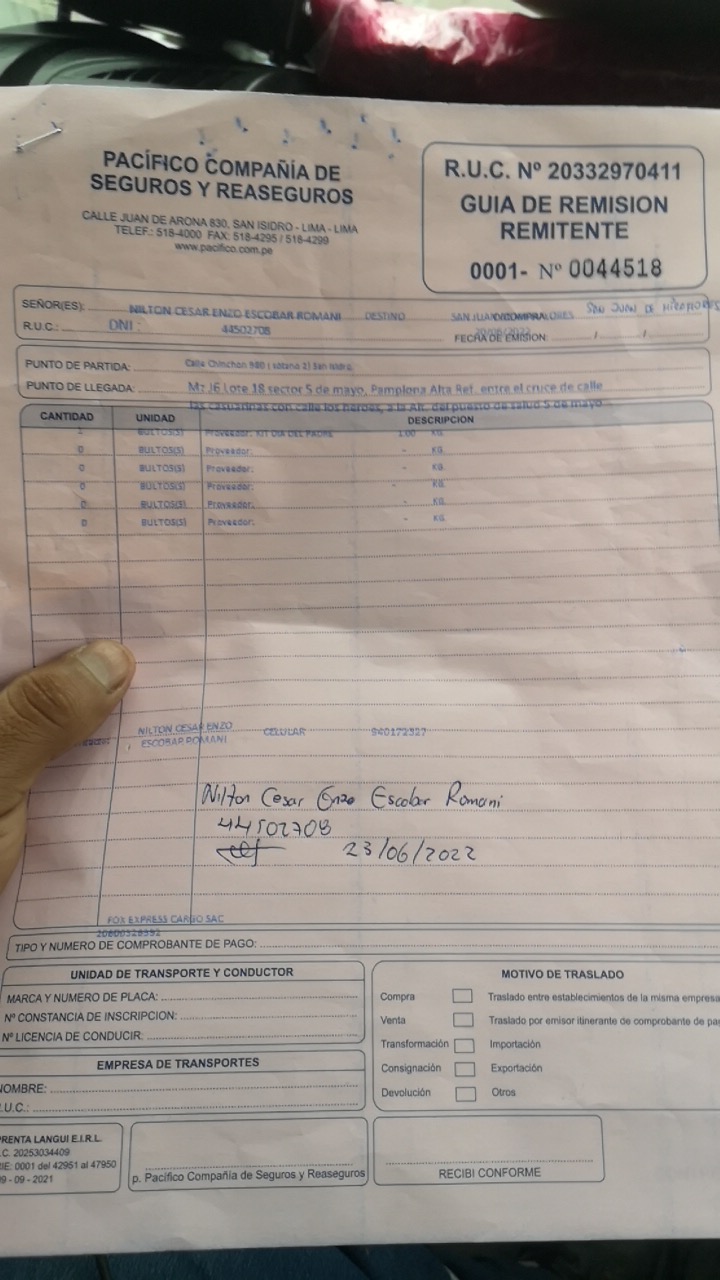 PACÍFICO COMPAÑÍA DE
SEGUROS Y REASEGUROS
CALLE JUAN DE ARONA 830, SAN ISIDRO - LIMA - LIMA
TELEF.: 518-4000 FAX: 518-4295 / 518-4299
www.pacifico.com.pe
R.U.C. Nº 20332970411
GUIA DE REMISION
REMITENTE
0001- Nº 0044518
SEÑOR(ES): NILTON CESAR ENZO ESCOBAR ROMANI DESTINO SAN JUAN SAN JUAN DE MIRAFLORES
R.U.C.: DNI : 44502708 FECHA DE EMISIÓN: / /
PUNTO DE PARTIDA: Calle Chinchon 980 ( sotano 2) San Isidro
PUNTO DE LLEGADA: Mz J6 Lote 18 sector 5 de mayo, Pamplona Alta Ref. entre el cruce de calle
las casuarinas con calle los heroes, a la Alt. del puesto de salud 5 de mayo
CANTIDAD UNIDAD DESCRIPCION
BULTOS(S) Proveedor: KIT DIA DEL PADRE 1.00 KG.
0 BULTOS(S) Proveedor: - KG.
0 BULTOS(S) Proveedor: - KG.
0 BULTOS(S) Proveedor: - KG.
0 BULTOS(S) Proveedor: - KG.
0 BULTOS(S) Proveedor: - KG.
NILTON CESAR ENZO CELULAR 940172327
ESCOBAR ROMANI
Nilton Cesar Enzo Escobar Romani
44502708
23/06/2022
FOX EXPRESS CARGO SAC
TIPO Y NUMERO DE COMPROBANTE DE PAGO:
UNIDAD DE TRANSPORTE Y CONDUCTOR
MARCA Y NUMERO DE PLACA:
Nº CONSTANCIA DE INSCRIPCION:
Nº LICENCIA DE CONDUCIR:
EMPRESA DE TRANSPORTES
NOMBRE:
.U.C.:
MOTIVO DE TRASLADO
Compra Traslado entre establecimientos de la misma empresa
Venta Traslado por emisor itinerante de comprobante de pa
Transformación Importación
Consignación Exportación
Devolución Otros
RENTA LANGUI E.I.R.L.
.C. 20253034409
RIE: 0001 del 42951 al 47950
9 - 09 - 2021
p. Pacífico Compañía de Seguros y Reaseguros
RECIBI CONFORME